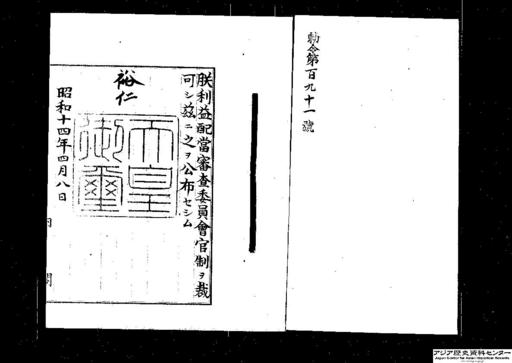 勅令第百九十一號
朕利益配當審査委員會官制ヲ裁
可シ茲ニ之ヲ公布セシム
裕仁
天皇御璽
昭和十四年四月八日
内閣
アジア歴史資料センター
Japan Center for Asian Historical Records